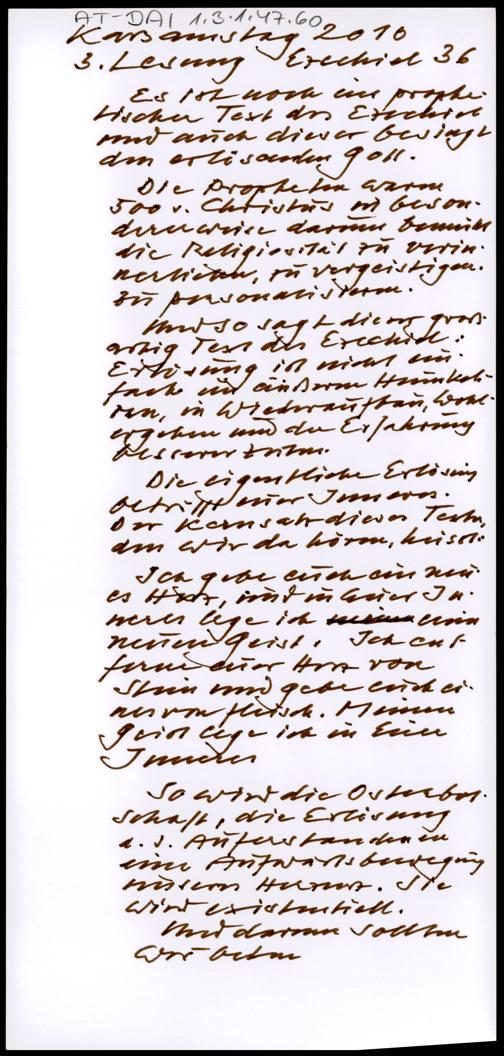 AT-DAI 1.3.1.47.60
Karsamstag 2010
3. Lesung Ezechiel 36
Es ist noch ein prophe-
tischer Text des Ezechiel
und auch dieser besingt
den erlösenden Gott.
Die Propheten waren
500 v. Christus in beson-
derer weise darum bemüht
die Religiosität zu verin-
nerlichen, zu vergeistigen.
zu personalisieren.
Und so sagt dieser groß-
artig Text des Ezechiel:
Erlösung ist nicht ein-
fach in äußerem Heimkeh-
ren, in Wiederaufbau, Wohl-
ergehen und der Erfahrung
besserer Zeiten.
Die eigentliche Erlösung
betrifft euer Inneres.
Der Kernsatz dieses Textes,
den wir da hören, heisst:
Ich gebe euch ein neu-
es Herz, und in euer In-
neres lege ich einen
neuen Geist. Ich ent-
ferne euer Herz von
Stein und gebe euch ei-
nes von Fleisch. Meinen
Geist lege ich in Euer
Inneres
So wird die Osterbot-
schaft, die Erlösung
d. d. Auferstandenen
eine Aufwärtsbewegung
unseres Herzens. Sie
wird existentiell.
Und darum sollten
wir beten